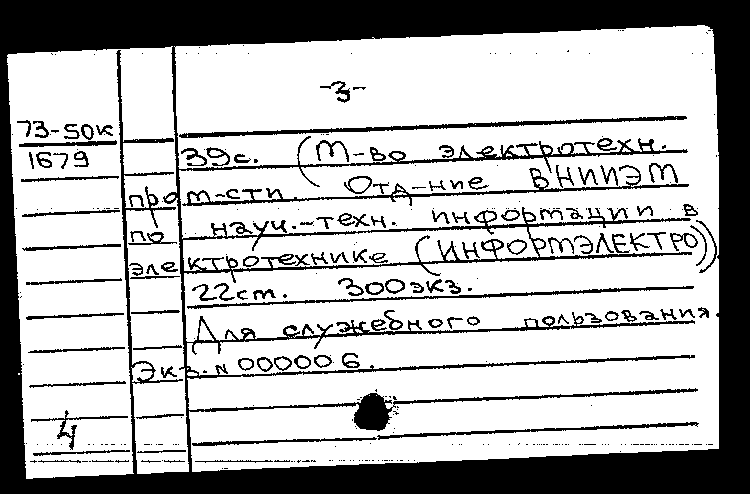 -3-
73-50к
1679
39с. (М-во электротехн.
пром-сти. Отд-ние ВНИИЭМ
по науч.-техн. информации в
электротехнике (ИНФОРМЭЛЕКТРО))
22см. 300экз.
Для служебного пользования.
Экз. N 000006.
4